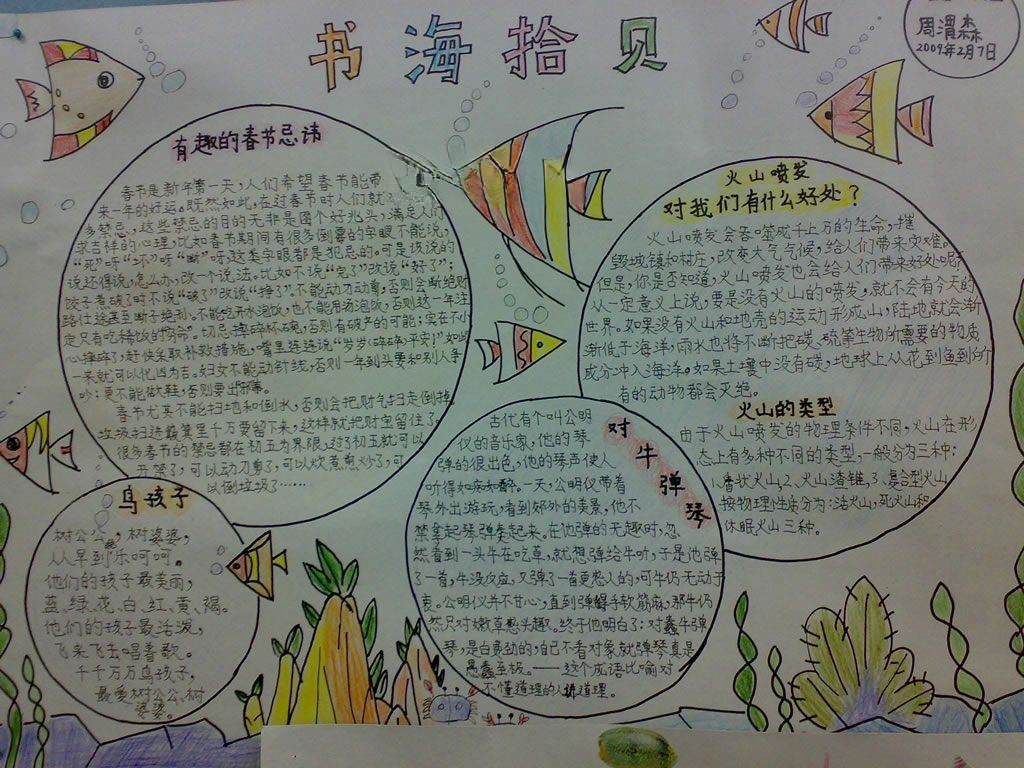 书海拾贝
周渭森
2009年2月7日
有趣的春节忌讳
春节是新年第一天,人们希望春节能带
来一年的好运。既然如此,在过春节时人们就
多禁忌,这些禁忌的目的无非是图个好兆头,满足人们
求吉祥的心理,比如春节期间有很多倒霉的字眼不能说,
“死”呀“坏”呀“断”呀,这类字眼都是犯忌的。可是该说的
说还得说,怎么办,改一个说法。比如不说“完了”改说“好了”;
饺子煮破了时不说“破了”改说“挣了”。不能动刀动剪,否则会断绝财
路仕途甚至断子绝孙。不能吃开水泡饭,也不能用汤泡饭,否则这一年注
定只有吃稀饭的“穷命”。切忌摔碎杯碗,否则有破产的可能;实在不小
心摔碎了,赶快采取补救措施,嘴里连连说“岁岁(碎碎)平安!”如此
一来就可以化凶为吉。妇女不能动针线,否则一年到头要和别人争
吵:更不能做鞋,否则要出邪事。
春节尤其不能扫地和倒水,否则会把财气扫走倒掉。
垃圾扫进戴箕里千万要留下来,这样就把财里留住了。
很多春节的禁忌都在初五为界限,过了初五就可以
开荤了,可以动刀剪了,可以炊煮煎炒了,可
以倒垃圾了……
鸟孩子
树公公,树婆婆,
从早到乐呵呵。
他们的孩子最美丽,
蓝、绿、花、白、红、黄、褐。
他们的孩子最活泼,
飞来飞去唱着歌。
千千万万鸟孩子,
最爱树公公、树
婆婆。
对牛弹琴
古代有个叫公明
仪的音乐家,他的琴
弹的很出色,他的琴声使人
听得如痴如醉。一天,公明仪带着
琴外出游玩,看到郊外的美景,他不
禁拿起琴弹奏起来。在他弹的无趣时,忽
然看到一头牛在吃草,就想弹给牛听,于是他弹
了一首,牛没反应,又弹了一首更愁人的,可牛仍无动于
衷。公明仪并不甘心,直到弹得手软筋麻,那牛仍
然只对嫩草感头趣。终于他明白了:对蠢牛弹
琴,是白费劲的,自己不看对象就弹琴真是
愚蠢至极。——这个成语比喻对
不懂道理的人讲道理。
火山喷发
对我们有什么好处?
火山喷发会吞噬成千上万的生命,摧
毁城镇和村庄,改变大气气候,给人们带来灾难。
但是,你是否知道,火山喷发也会给人们带来好处呢?
从一定意义上说,要是没有火山的喷发,就不会有今天的
世界。如果没有火山和地壳的运动形成山,陆地就会渐
渐低于海洋,雨水也将不断把碳、硫等生物所需要的物质
成分冲入海洋。如果土壤中没有碳,地球上从花到鱼到所
有的动物都会灭绝。
火山的类型
由于火山喷发的物理条件不同,火山在形
态上有多种不同的类型,一般分为三种:
1、盾状火山,2、火山渣锥,3、复合型火山
按物理性质分为:活火山,死火山和
休眠火山三种。